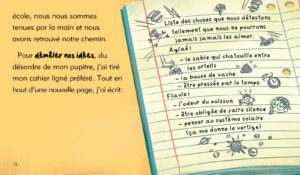 école, nous nous sommes
tenues par la main et nous
avons retrouvé notre chemin.
Pour démêler nos idées, du
désordre de mon pupitre, j'ai tiré
mon cahier ligné préféré. Tout en
haut d'une nouvelle page, j'ai écrit :
12
Liste des choses que nous détestons
tellement que nous ne pourrons
jamais jamais les aimer.
Aglaé :
- le sable qui chatouille entre
les orteils
- la bouse de vache
- être pressée par le temps
Flavie :
- l'odeur du poisson
- être obligée de faire silence
- penser au système solaire
(ça me donne le vertige)